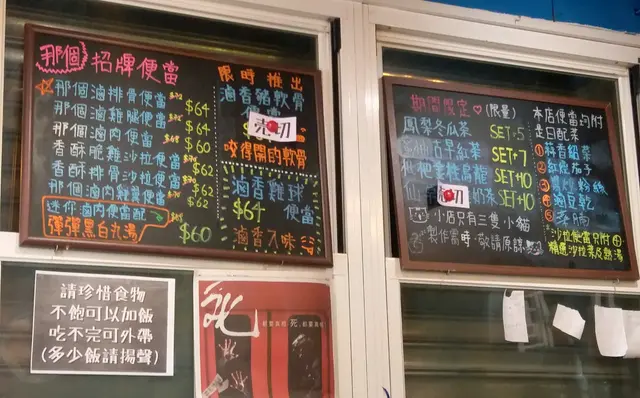 那個 招牌便當
那個滷排骨便當
$64
那個滷雞腿便當
$64
那個滷肉便當
$60
香酥脆雞沙拉便當
$62
香酥排骨沙拉便當
$62
那個滷肉雞捲便當
$62
迷你滷肉便當配
彈彈黑白丸湯
$60
限時推出
滷香豬軟骨
便當
咬得開的軟骨
滷香雞球
$64 便當
滷香入味
期間限定♡(限量)
鳳梨冬瓜茶 SET+5
古早紅茶 SET+7
烏龍 SET+10
仙 奶珠 SET+10
小店只有三隻小貓
製作需時,敬請原諒
本店便當均附
是日配菜
①蒜香
②紅燒茄子
③粉絲
④滷豆乾
沙拉便當只附④
請珍惜食物
不飽可以加飯
吃不完可外帶
(多少飯請揚聲)
死